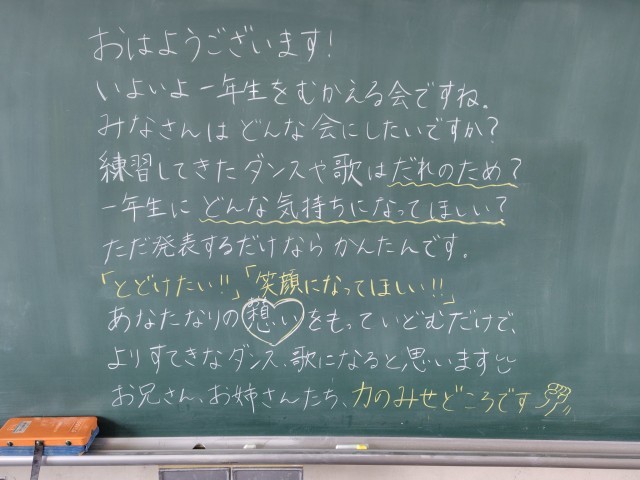 おはようございます!
いよいよ一年生をむかえる会ですね。
みなさんはどんな会にしたいですか?
練習してきたダンスや歌はだれのため?
一年生にどんな気持ちになってほしい?
ただ発表するだけならかんたんです。
「とどけたい!!」「笑顔になってほしい!!」
あなたなりの想いをもっていどむだけで、
よりすてきなダンス、歌になると思います
お兄さん、お姉さんたち、力のみせどころです